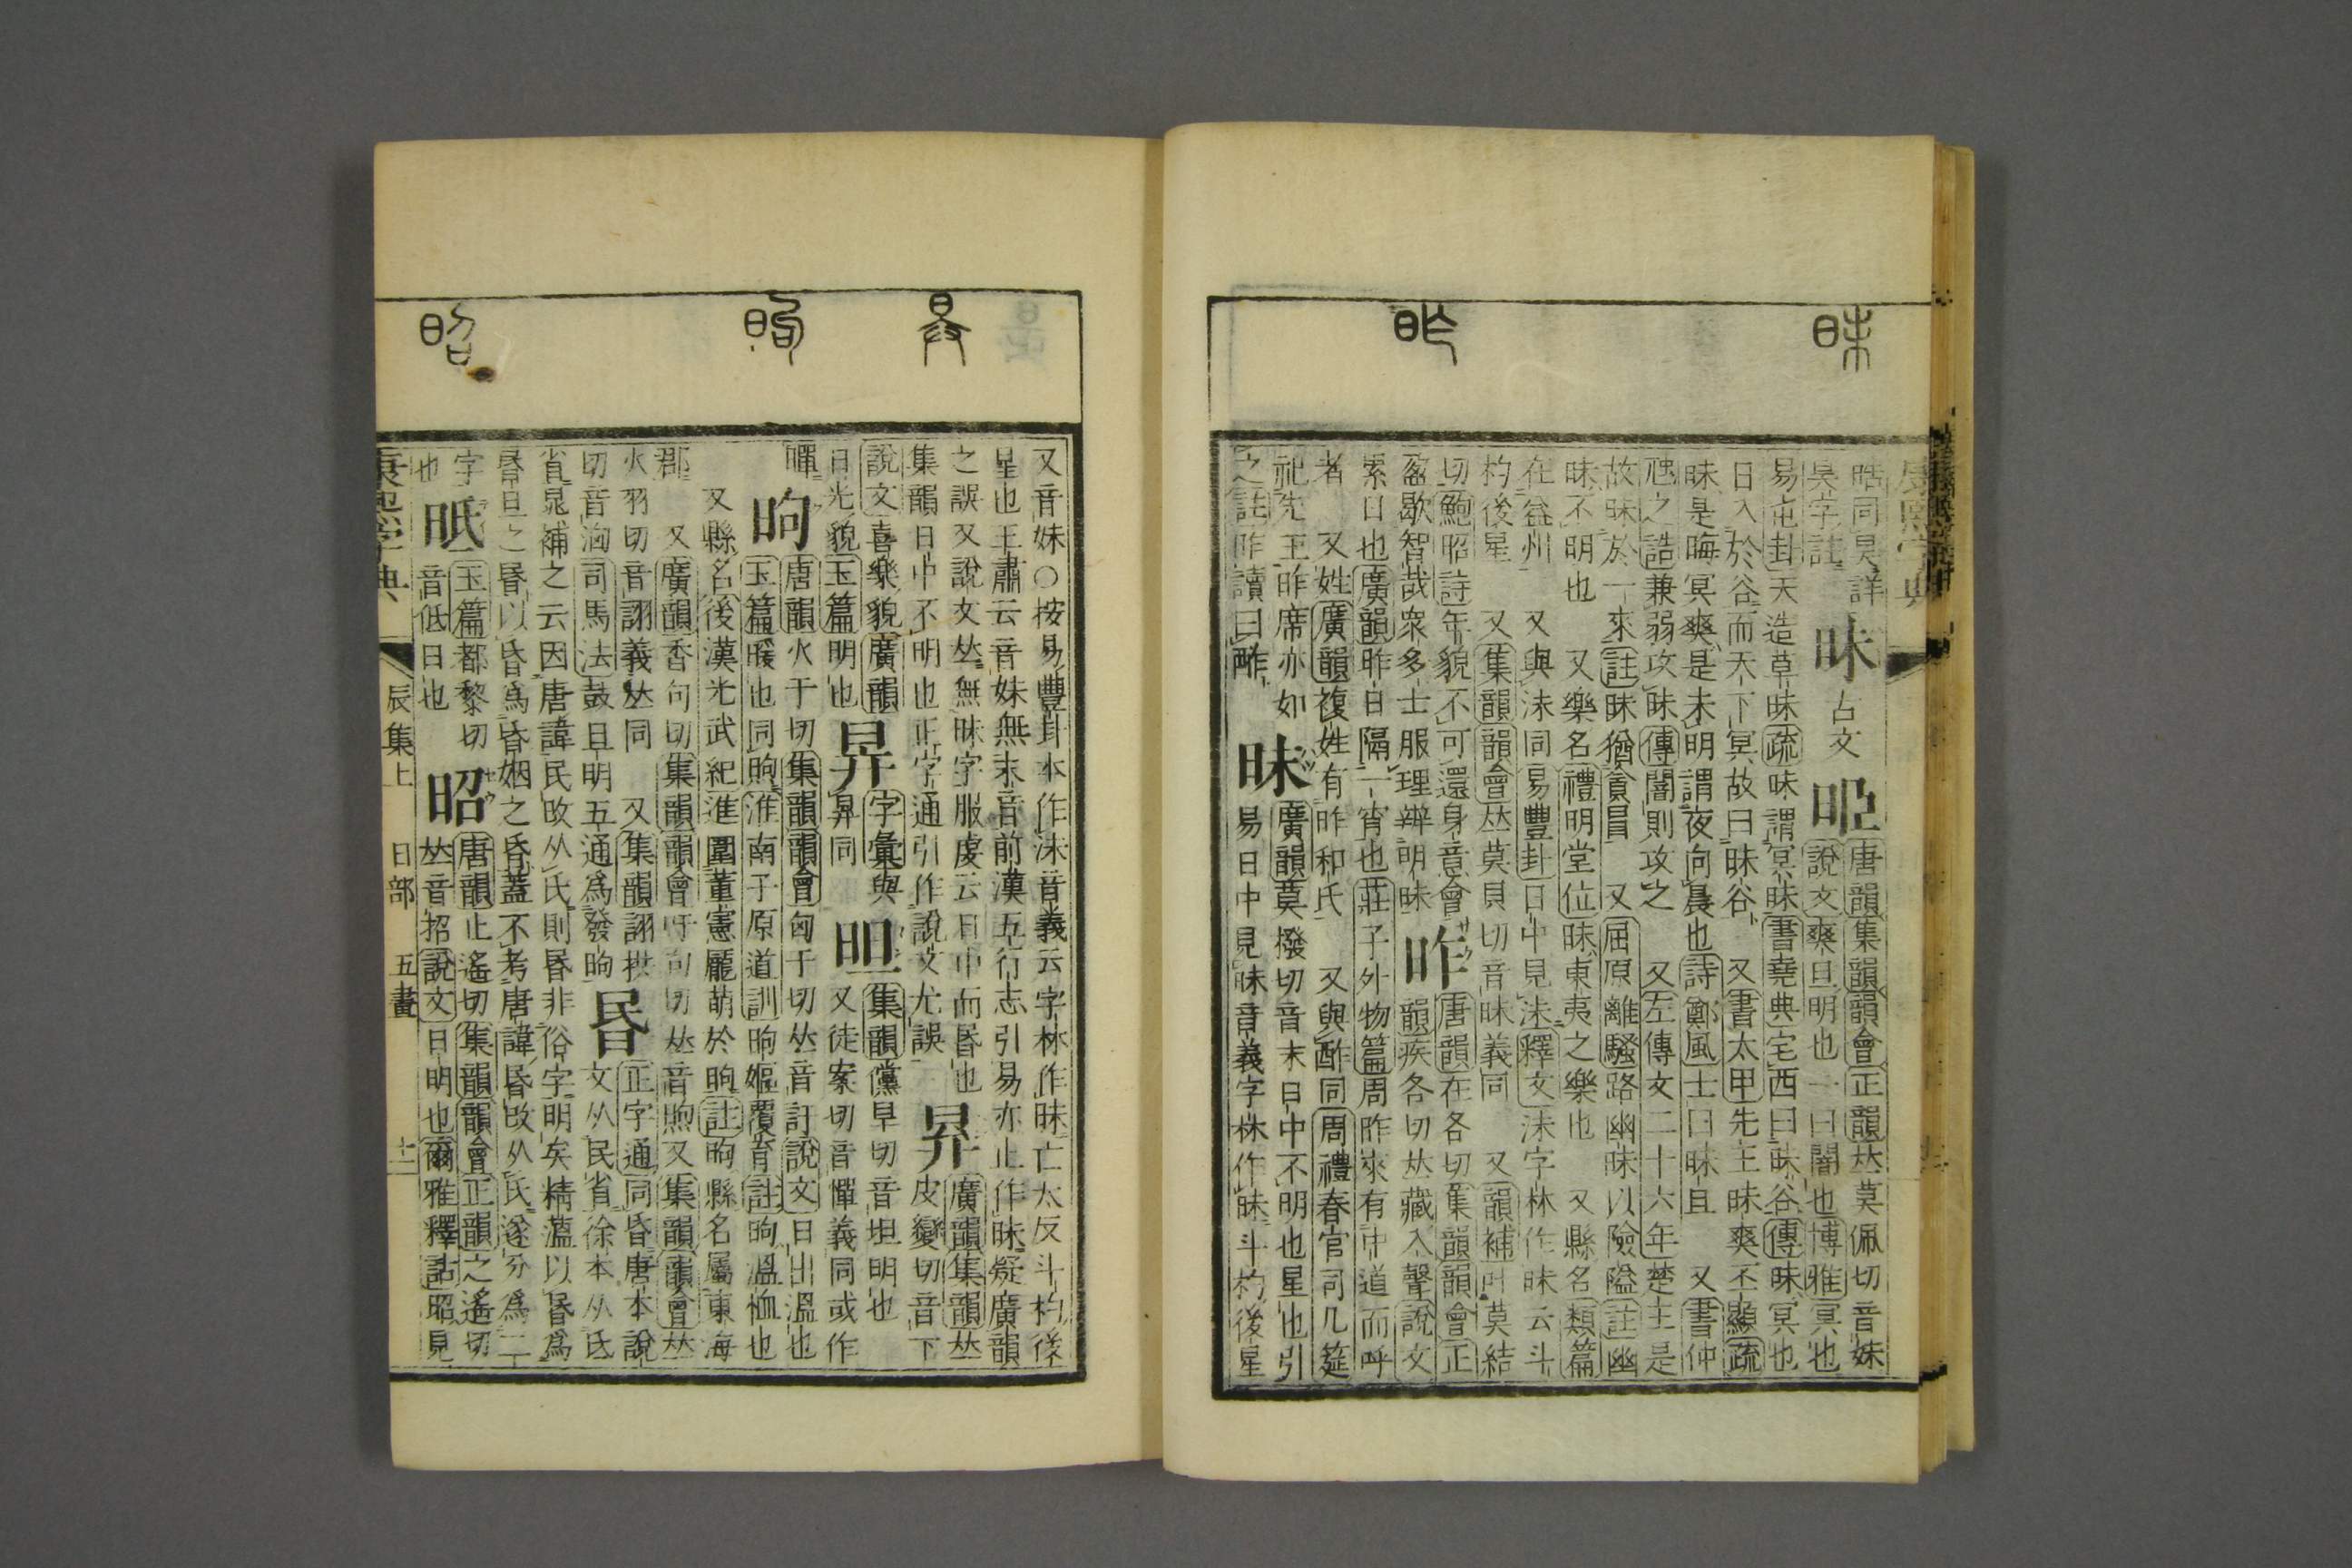 昧
昨
康熙字典
晧同昊詳
昊字註
昧
古文
唐韻集韻韻會正韻𠀤莫佩切音妹
說文爽旦明也一曰闇也博雅冥也
易屯卦天造草昧疏昧謂冥昧書堯典宅西曰昧谷傳昧冥也
日入於谷而天下冥故曰昧谷 又書太甲先王昧爽丕顯疏
昧是晦冥爽是未明謂夜向晨也詩鄭風士曰昧旦 又書仲
虺之誥兼弱攻昧傳闇則攻之 又左傳文二十六年楚王是
故昧於一來註昧猶貪冒 又屈原離騷路幽昧以險隘註幽
昧不明也 又樂名禮明堂位昧東夷之樂也 又縣名類篇
在益州 又與沬同易豐卦日中見沬釋文沬字林作昧云斗
杓後星 又集韻韻會𠀤莫貝切音昧義同 又韻補叶莫結
切鮑昭詩年貌不可還身意會
盈歇智哉衆多士服理辯明昧
昨
唐韻在各切集韻韻會正
韻疾各切𠀤藏入聲說文
絫日也廣韻昨日隔一宵也莊子外物篇周昨來有中道而呼
者 又姓廣韻複姓有昨和氏 又與酢同周禮春官司几筵
祀先王昨席亦如
之註昨讀曰酢
昩
廣韻莫撥切音末日中不明也星也引
易日中見昩音義字林作昩斗杓後星
昪
昫
昭
又音妹○按易豐卦本作沬音義云字林作昧亡太反斗杓後
星也王肅云音妹無末音前漢五行志引易亦止作昧疑廣韻
之誤又說文𠀤無昩字服虔云日中而昬也
集韻日中不明也正字通引作說文尤誤
昪
廣韻集韻𠀤
皮變切音下
說文喜樂貌廣韻
日光貌玉篇明也
字彙與
昪同
㫜
集韻儻旱切音坦明也
又徒案切音憚義同或作
暺
昫
唐韻火于切集韻韻會匈于切𠀤音訏說文日出溫也
玉篇暖也同煦淮南子原道訓昫嫗覆育註昫溫恤也
又縣名後漢光武紀進圍董憲龐萌於昫註昫縣名屬東海
郡 又廣韻香句切集韻韻會吁句切𠀤音煦又集韻韻會𠀤
火羽切音詡義𠀤同 又集韻詡拱
切音洶司馬法鼓旦明五通爲發昫
昬
正字通同昏唐本說
文从民省徐本从氏
省晁補之云因唐諱民改从氏則昬非俗字明矣精薀以昬爲
昬旦之昬以昏爲昏姻之昏蓋不考唐諱昬改从氏遂分爲二
字
也
玉篇都黎切
音低日也
昭
唐韻止遙切集韻韻會正韻之遙切
𠀤音招說文日明也爾雅釋詁昭見
康熙字典 辰集上 日部 五畫 十二